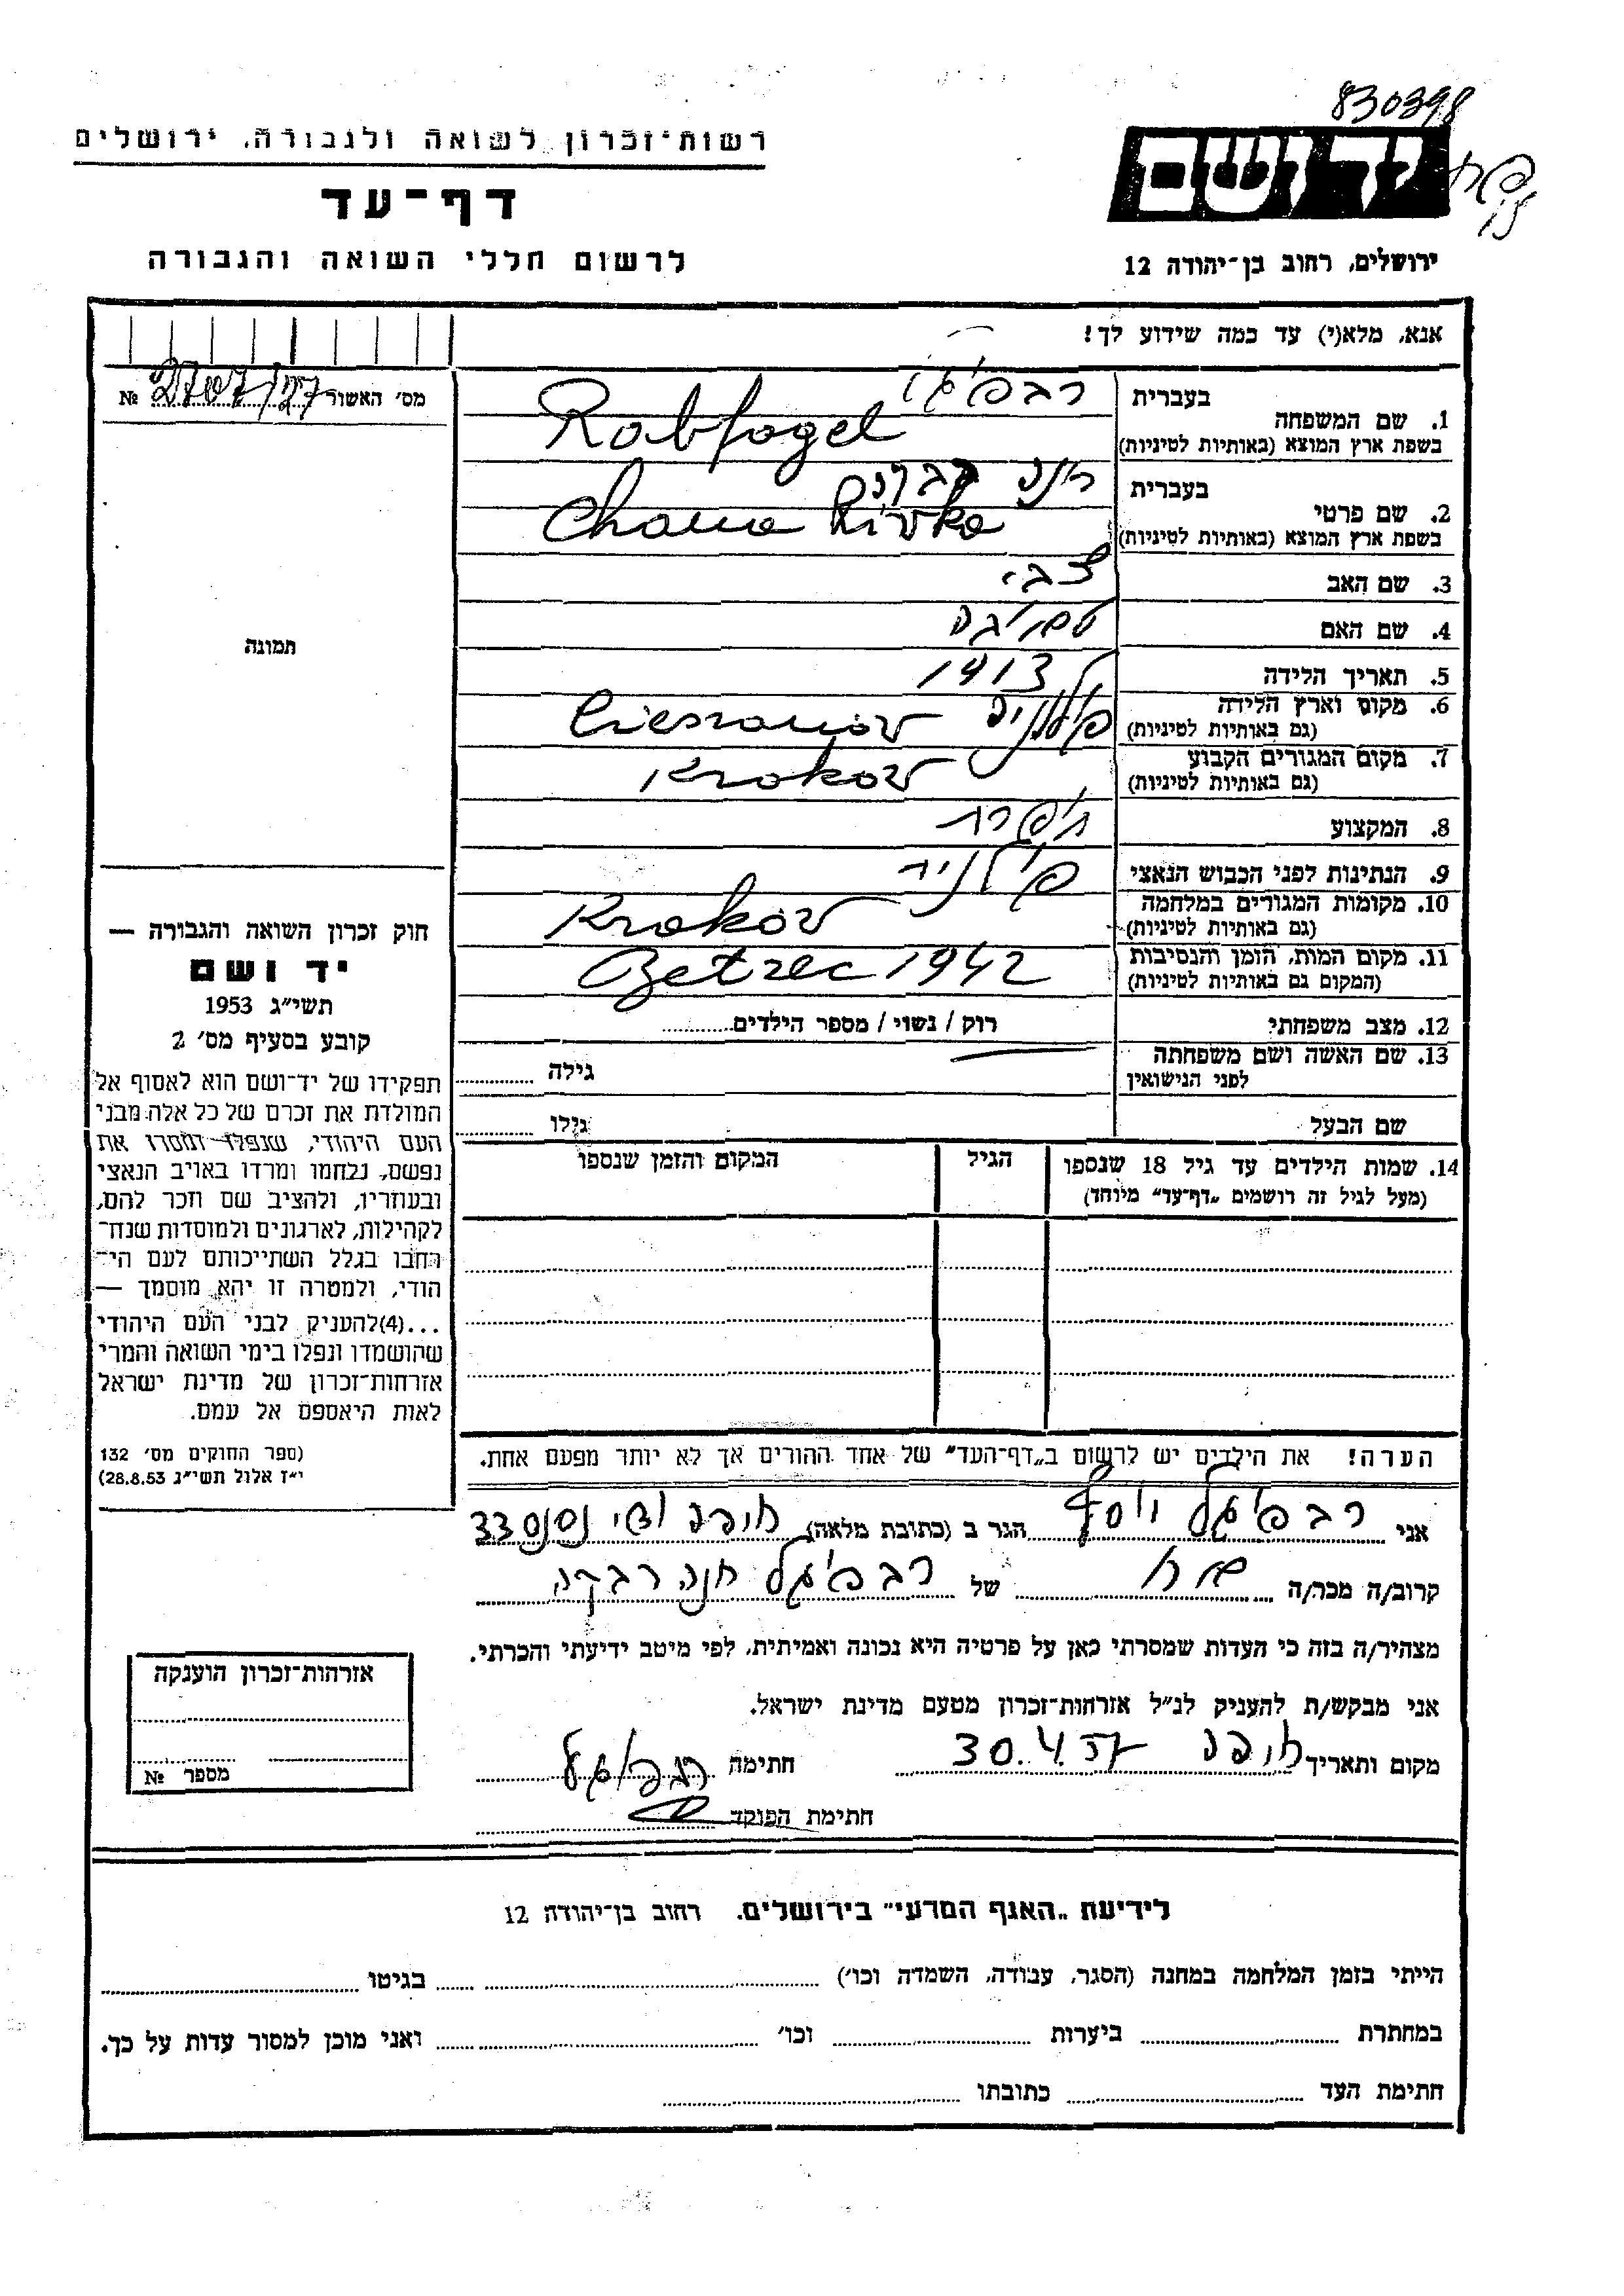 830398
רשות־זכרון לשואה ולגבורה, ירושלים
יד ושם
דף־עד
לרשום חללי השואה והגבורה
ירושלים, רחוב בן־יהודה 12
אנא, מלא(י) עד כמה שידוע לך!
מס׳ האשור № 2707/127
1. שם המשפחה בעברית רבפוגל
בשפת ארץ המוצא (באותיות לטיניות) Rabfogel
2. שם פרטי בעברית חנה רבקה
בשפת ארץ המוצא (באותיות לטיניות) Chana Rivka
3. שם האב צבי
4. שם האם
5. תאריך הלידה 1913
6. מקום וארץ הלידה (גם באותיות לטיניות) פולניה Cieszanov
7. מקום המגורים הקבוע (גם באותיות לטיניות) Krakov
8. המקצוע תופרת
9. הנתינות לפני הכבוש הנאצי פולניה
10. מקומות המגורים במלחמה (גם באותיות לטיניות) Krakov
11. מקום המות, הזמן והנסיבות (המקום גם באותיות לטיניות) Betzec 1942
12. מצב משפחתי רוק / נשוי / מספר הילדים
13. שם האשה ושם משפחתה לפני הנישואין גילה
שם הבעל גילו
14. שמות הילדים עד גיל 18 שנספו הגיל המקום והזמן שנספו
(מעל לגיל זה רושמים „דף־עד״ מיוחד)
תמונה
חוק זכרון השואה והגבורה —
יד ושם
תשי״ג 1953
קובע בסעיף מס׳ 2
תפקידו של יד־ושם הוא לאסוף אל
המולדת את זכרם של כל אלה מבני
העם היהודי, שנפלו ומסרו את
נפשם, נלחמו ומרדו באויב הנאצי
ובעוזריו, ולהציב שם וזכר להם,
לקהילות, לארגונים ולמוסדות שנח־
רבו בגלל השתייכותם לעם הי־
הודי, ולמטרה זו יהא מוסמך —
...(4)להעניק לבני העם היהודי
שהושמדו ונפלו בימי השואה והמרי
אזרחות־זכרון של מדינת ישראל
לאות היאספם אל עמם.
(ספר החוקים מס׳ 132
י״ז אלול תשי״ג 28.8.53)
הערה! את הילדים יש לרשום ב„דף־העד״ של אחד ההורים אך לא יותר מפעם אחת.
אני רבפוגל יוסף הגר ב (כתובת מלאה) חיפה ואדי נסנס 33
קרוב/ה מכר/ה אח של רבפוגל חנה רבקה
מצהיר/ה בזה כי העדות שמסרתי כאן על פרטיה היא נכונה ואמיתית, לפי מיטב ידיעתי והכרתי.
אני מבקש/ת להעניק לנ״ל אזרחות־זכרון מטעם מדינת ישראל.
מקום ותאריך חיפה 30.4.57 חתימה רבפוגל
חתימת הפוקד
אזרחות־זכרון הוענקה
מספר №
לידיעת „האגף המדעי״ בירושלים. רחוב בן־יהודה 12
הייתי בזמן המלחמה במחנה (הסגר, עבודה, השמדה וכו׳) בגיטו
במחתרת ביערות וכו׳ ואני מוכן למסור עדות על כך.
חתימת העד כתובתו